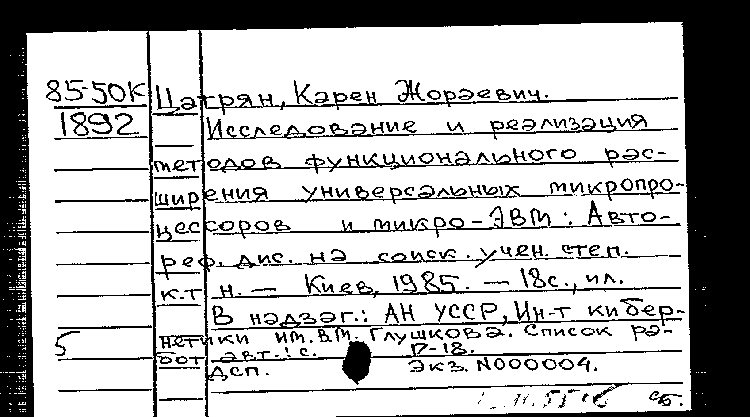 85-50К Цатрян, Карен Жораевич.
1892 Исследование и реализация
методов функционального рас-
ширения универсальных микропро-
цессоров и микро-ЭВМ: Авто-
реф. дис. на соиск. учен. степ.
к.т н. — Киев, 1985. — 18с., ил.
В надзаг.: АН УССР, Ин-т кибер-
5 нетики им. В.М. Глушкова. Список ра-
бот авт.: с. 17-18.
ДСП. Экз. N000004.
сб.